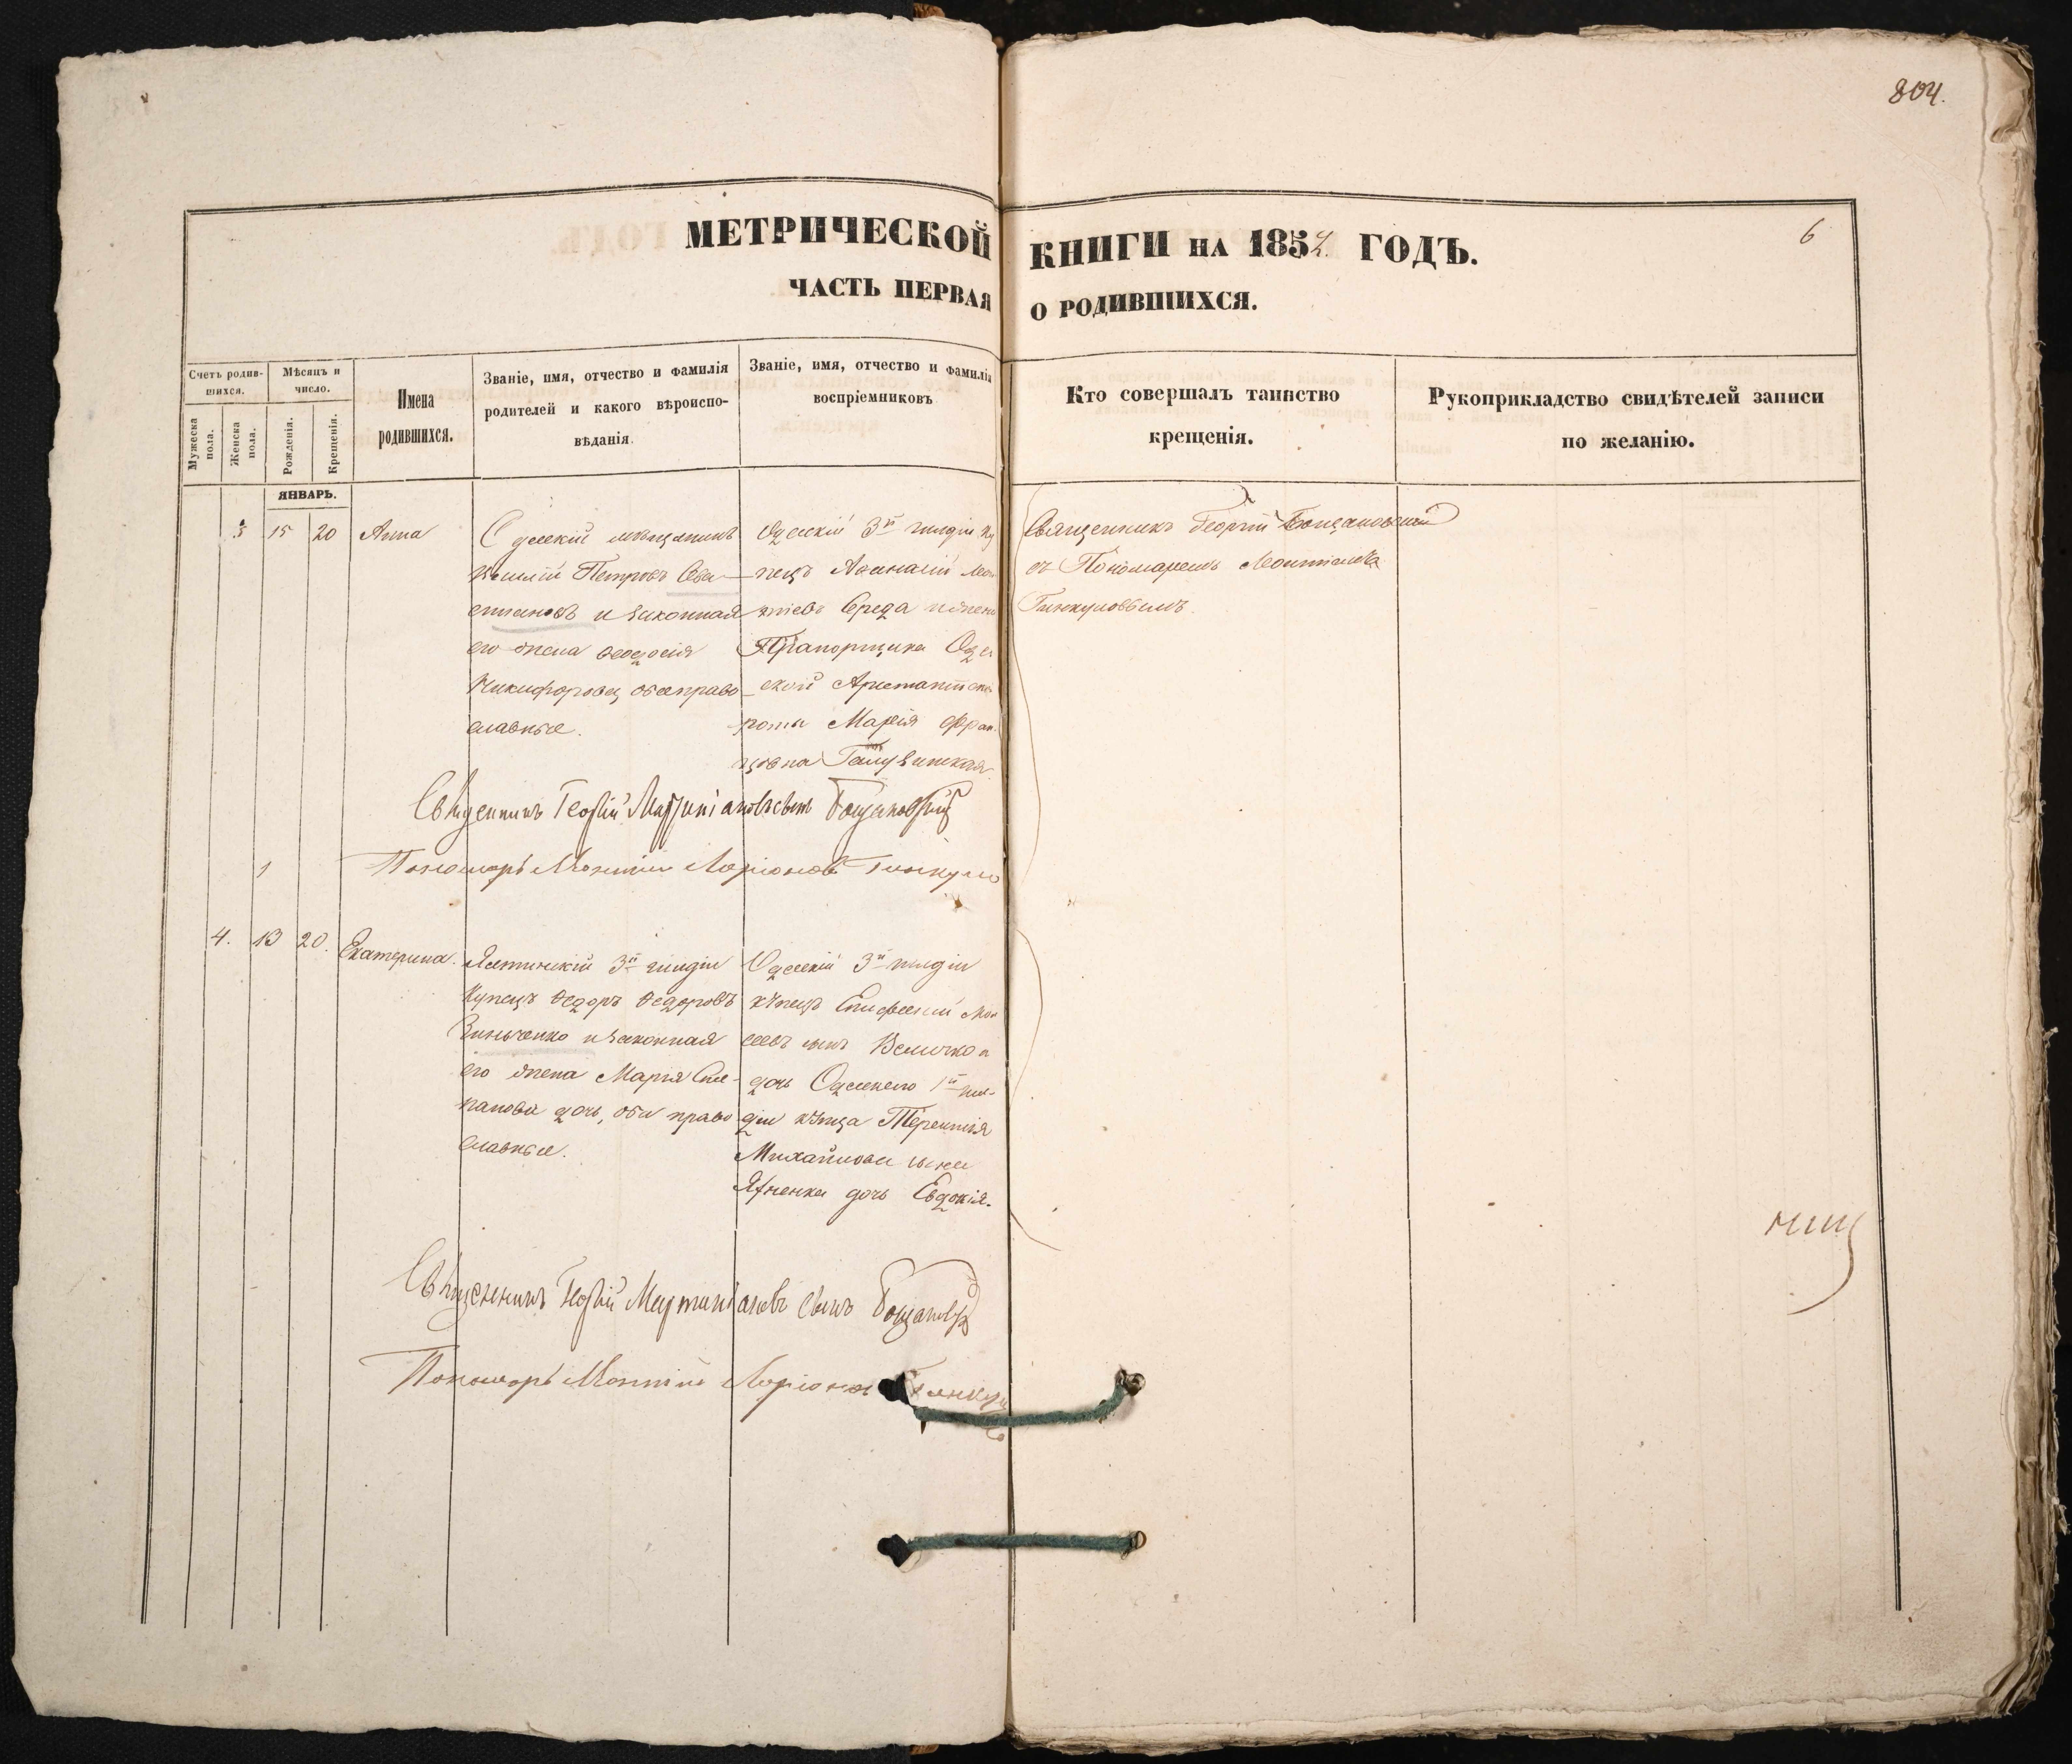 804.
6
МЕТРИЧЕСКОЙ КНИГИ НА 1852 ГОДЪ.
ЧАСТЬ ПЕРВАЯ О РОДИВШИХСЯ.
Счетъ родив-
шихся.
Мужеска пола.
Женска пола.
Мѣсяцъ и
число.
Рожденія.
Крещенія.
Имена
родившихся.
Званіе, имя, отчество и фамилія
родителей и какого вѣроиспо-
вѣданія.
Званіе, имя, отчество и фамилія
воспріемниковъ
Кто совершалъ таинство
крещенія.
Рукоприкладство свидѣтелей записи
по желанію.
ЯНВАРЬ.
3 15 20 Анна
Одесскій мѣщанинъ
Петровъ Сева-
стьяновъ и законная
его жена Ѳеодосія
Никифорова, обаправо
славные.
Одесскій 3й гильдіи ку
пецъ Афанасій Леон
тіевъ Середа
Прапорщика Одес
ской Арестантской
роты Марія Фран
цовна
Священникъ Георгій Бощановскій
съ Пономаремъ Леонтіемъ
Гинкуловымъ.
Священникъ Георгій Мартиніановъ сынъ Бощановскій
Пономарь Леонтій Ларіоновъ Гинкулъ
4. 13 20. Екатерина.
Ялтинскій 3й гильдіи
Купецъ Ѳедоръ Ѳедоровъ
Зинченко и законная
его жена Марія Сте-
панова дочь, оба право
славные.
Одесскій 3й гильдіи
купецъ Елисей Мои
сеевъ сынъ Величко и
дочь Одесскаго 1й гил-
діи купца Терентія
Михайлова сына
Яхненка дочь Евдокія.
Священникъ Георгій Мартиніановъ сынъ Бощановскій
Пономарь Леонтій Ларіоновъ Гинкулъ